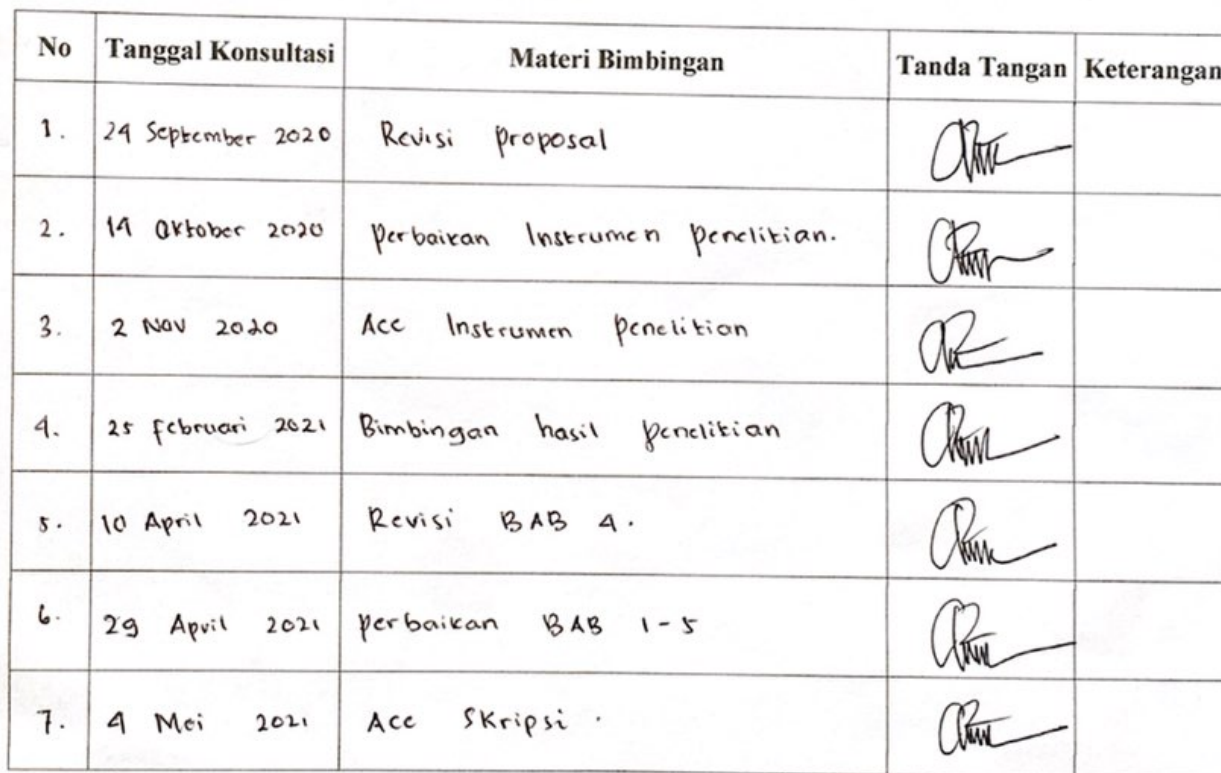 No Tanggal Konsultasi Materi Bimbingan Tanda Tangan Keterangan
1. 24 September 2020 Revisi proposal
2. 14 Oktober 2020 perbaikan Instrumen penelitian.
3. 2 Nov 2020 Acc Instrumen penelitian
4. 25 februari 2021 Bimbingan hasil penelitian
5. 10 April 2021 Revisi BAB 4.
6. 29 April 2021 perbaikan BAB 1-5
7. 4 Mei 2021 Acc Skripsi.